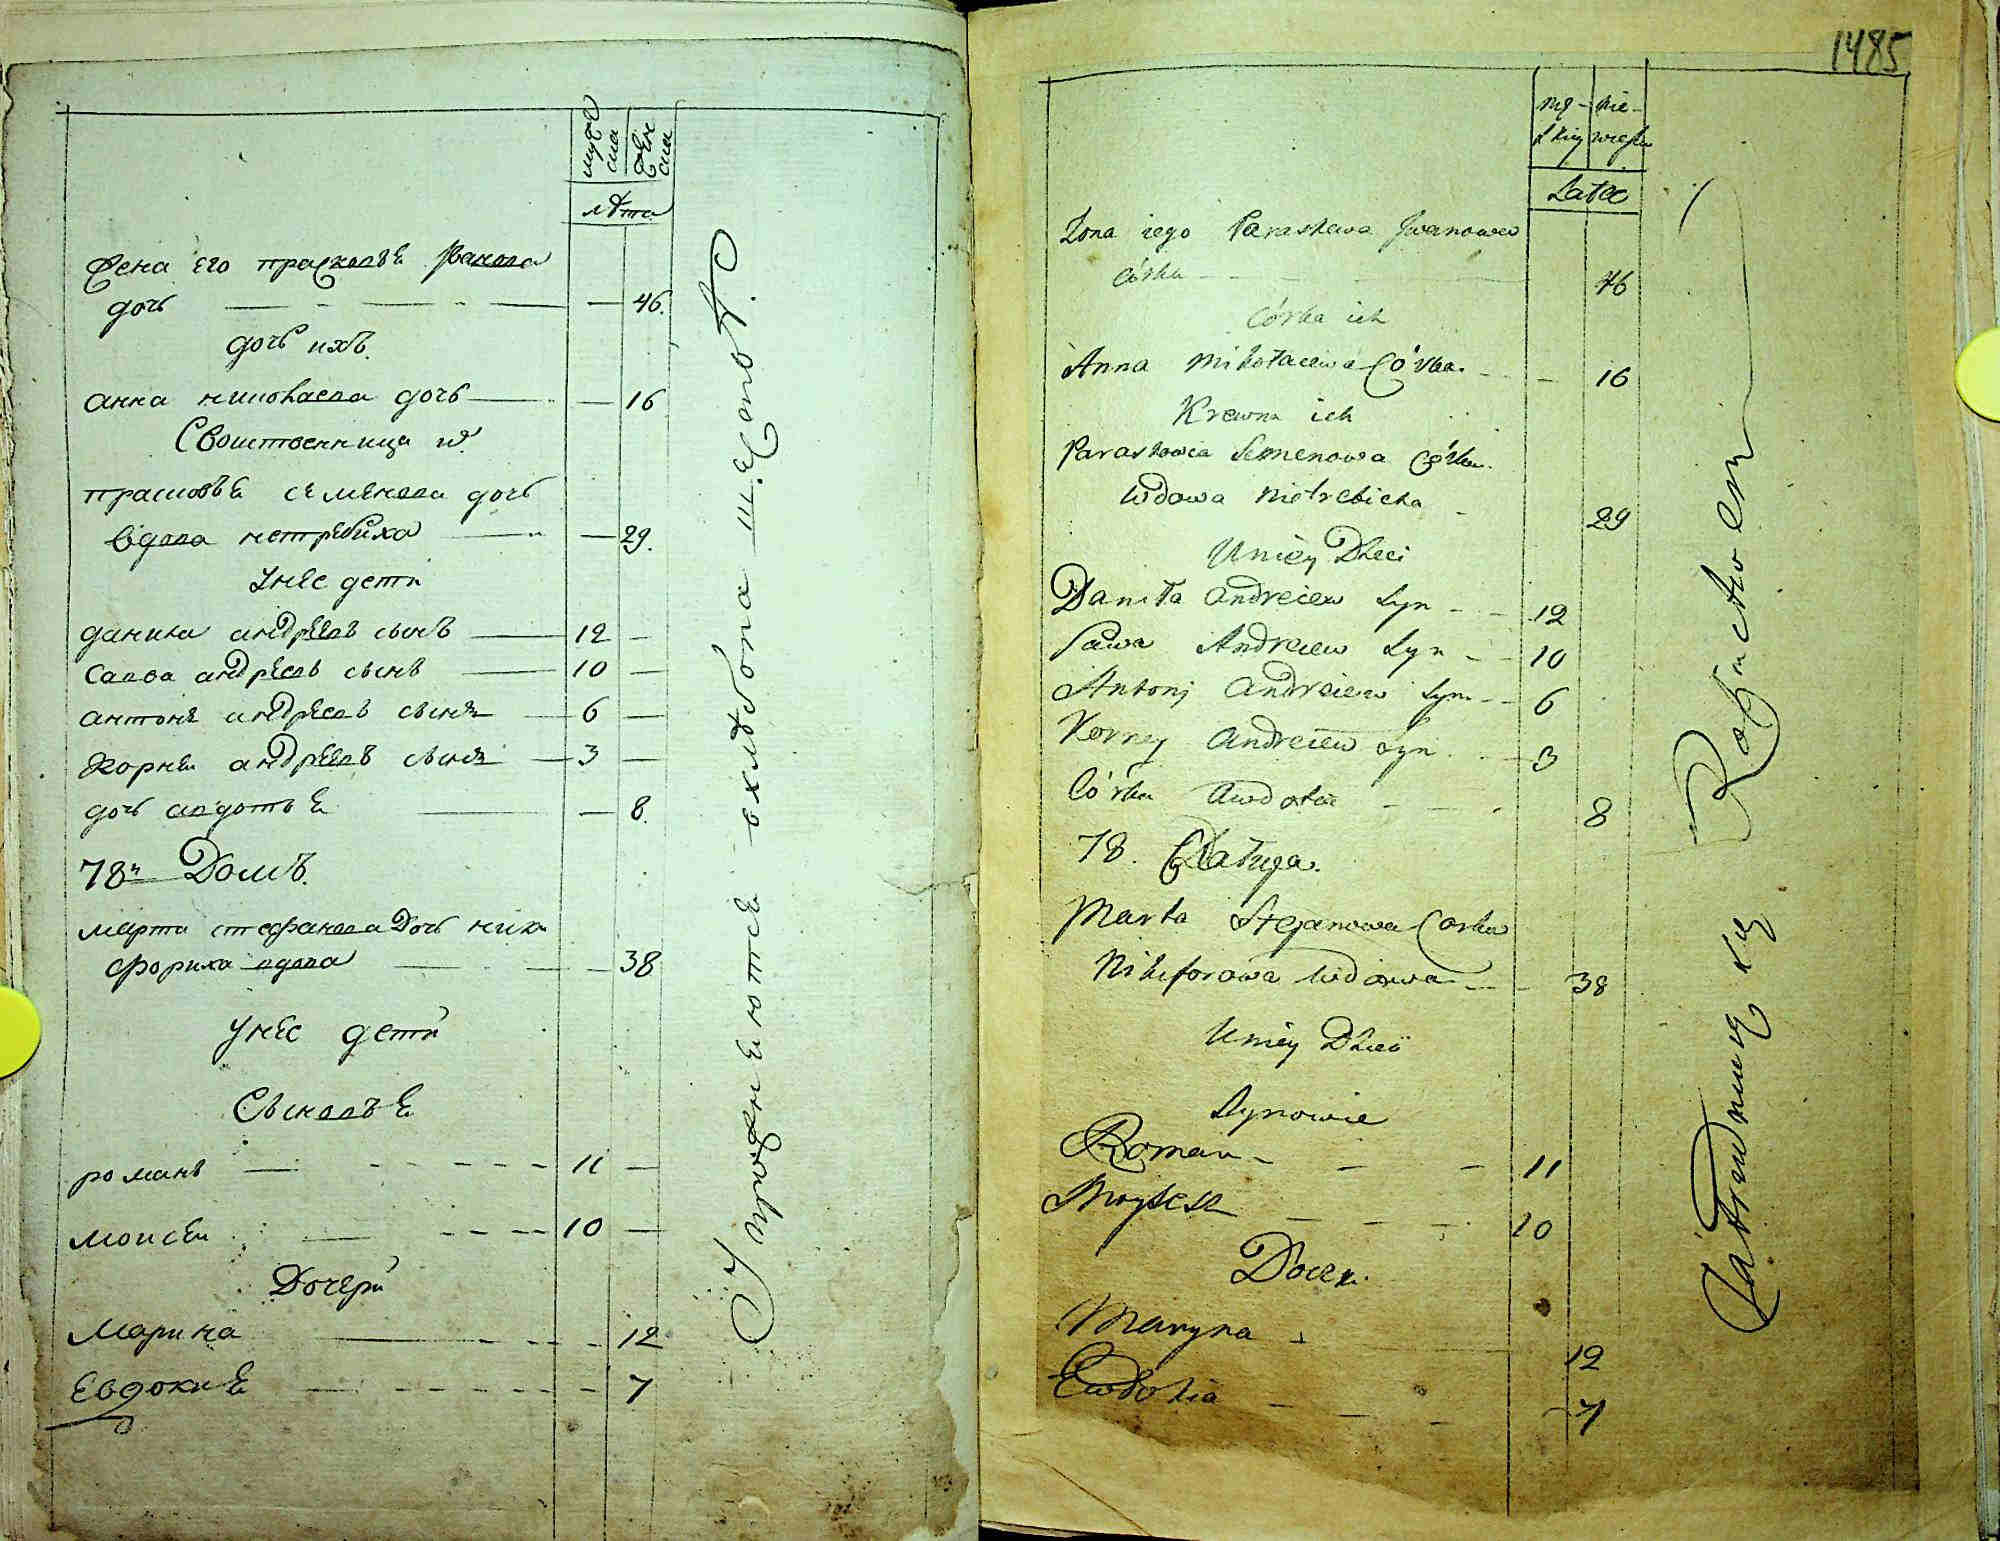 мужеска
женска
лѣта
Жена его прасковья Иванова
дочь — 46.
дочь ихъ.
анна николаева дочь — 16
Свойственница их.
прасковья семенова дочь
вдова нетребиха — 29.
У нее дети
данила андреевъ сынъ — 12 —
Савва андреевъ сынъ — 10 —
антонъ андреевъ сынъ — 6 —
Корней андреевъ сынъ — 3 —
дочь авдотья — 8.
78й Домъ.
марта стефанова Дочь ники
фориха вдова — 38
У нее дети
Сыновья
романъ — 11 —
моисей — 10 —
Дочери
Марина — 12
Евдокия — 7
Упражняются в хлебопашестве.
1485
męskiey
niewieskie
Lata
Żona iego Paraskewa Jwanowa
Córka — 46
Córka ich
Anna Mikołaiewa Córka — 16
Krewna ich
Paraskowia Semenowa Córka
Wdowa Nietrebicha — 29
U niey Dzieci
Daniła Andreiew Syn — 12
Sawa Andreiew Syn — 10
Antonj Andreiew Syn — 6
Korney Andreiew Syn — 3
Córka Awdotia — 8
78. Chałupa.
Marta Stefanowa Corka
Nikiforowa Wdowa — 38
U niey Dzieci
Synowie
Roman — 11
Moysey — 10
Docery
Maryna — 12
Ewdokia — 7
Zatrudniaią się Rolnictwem